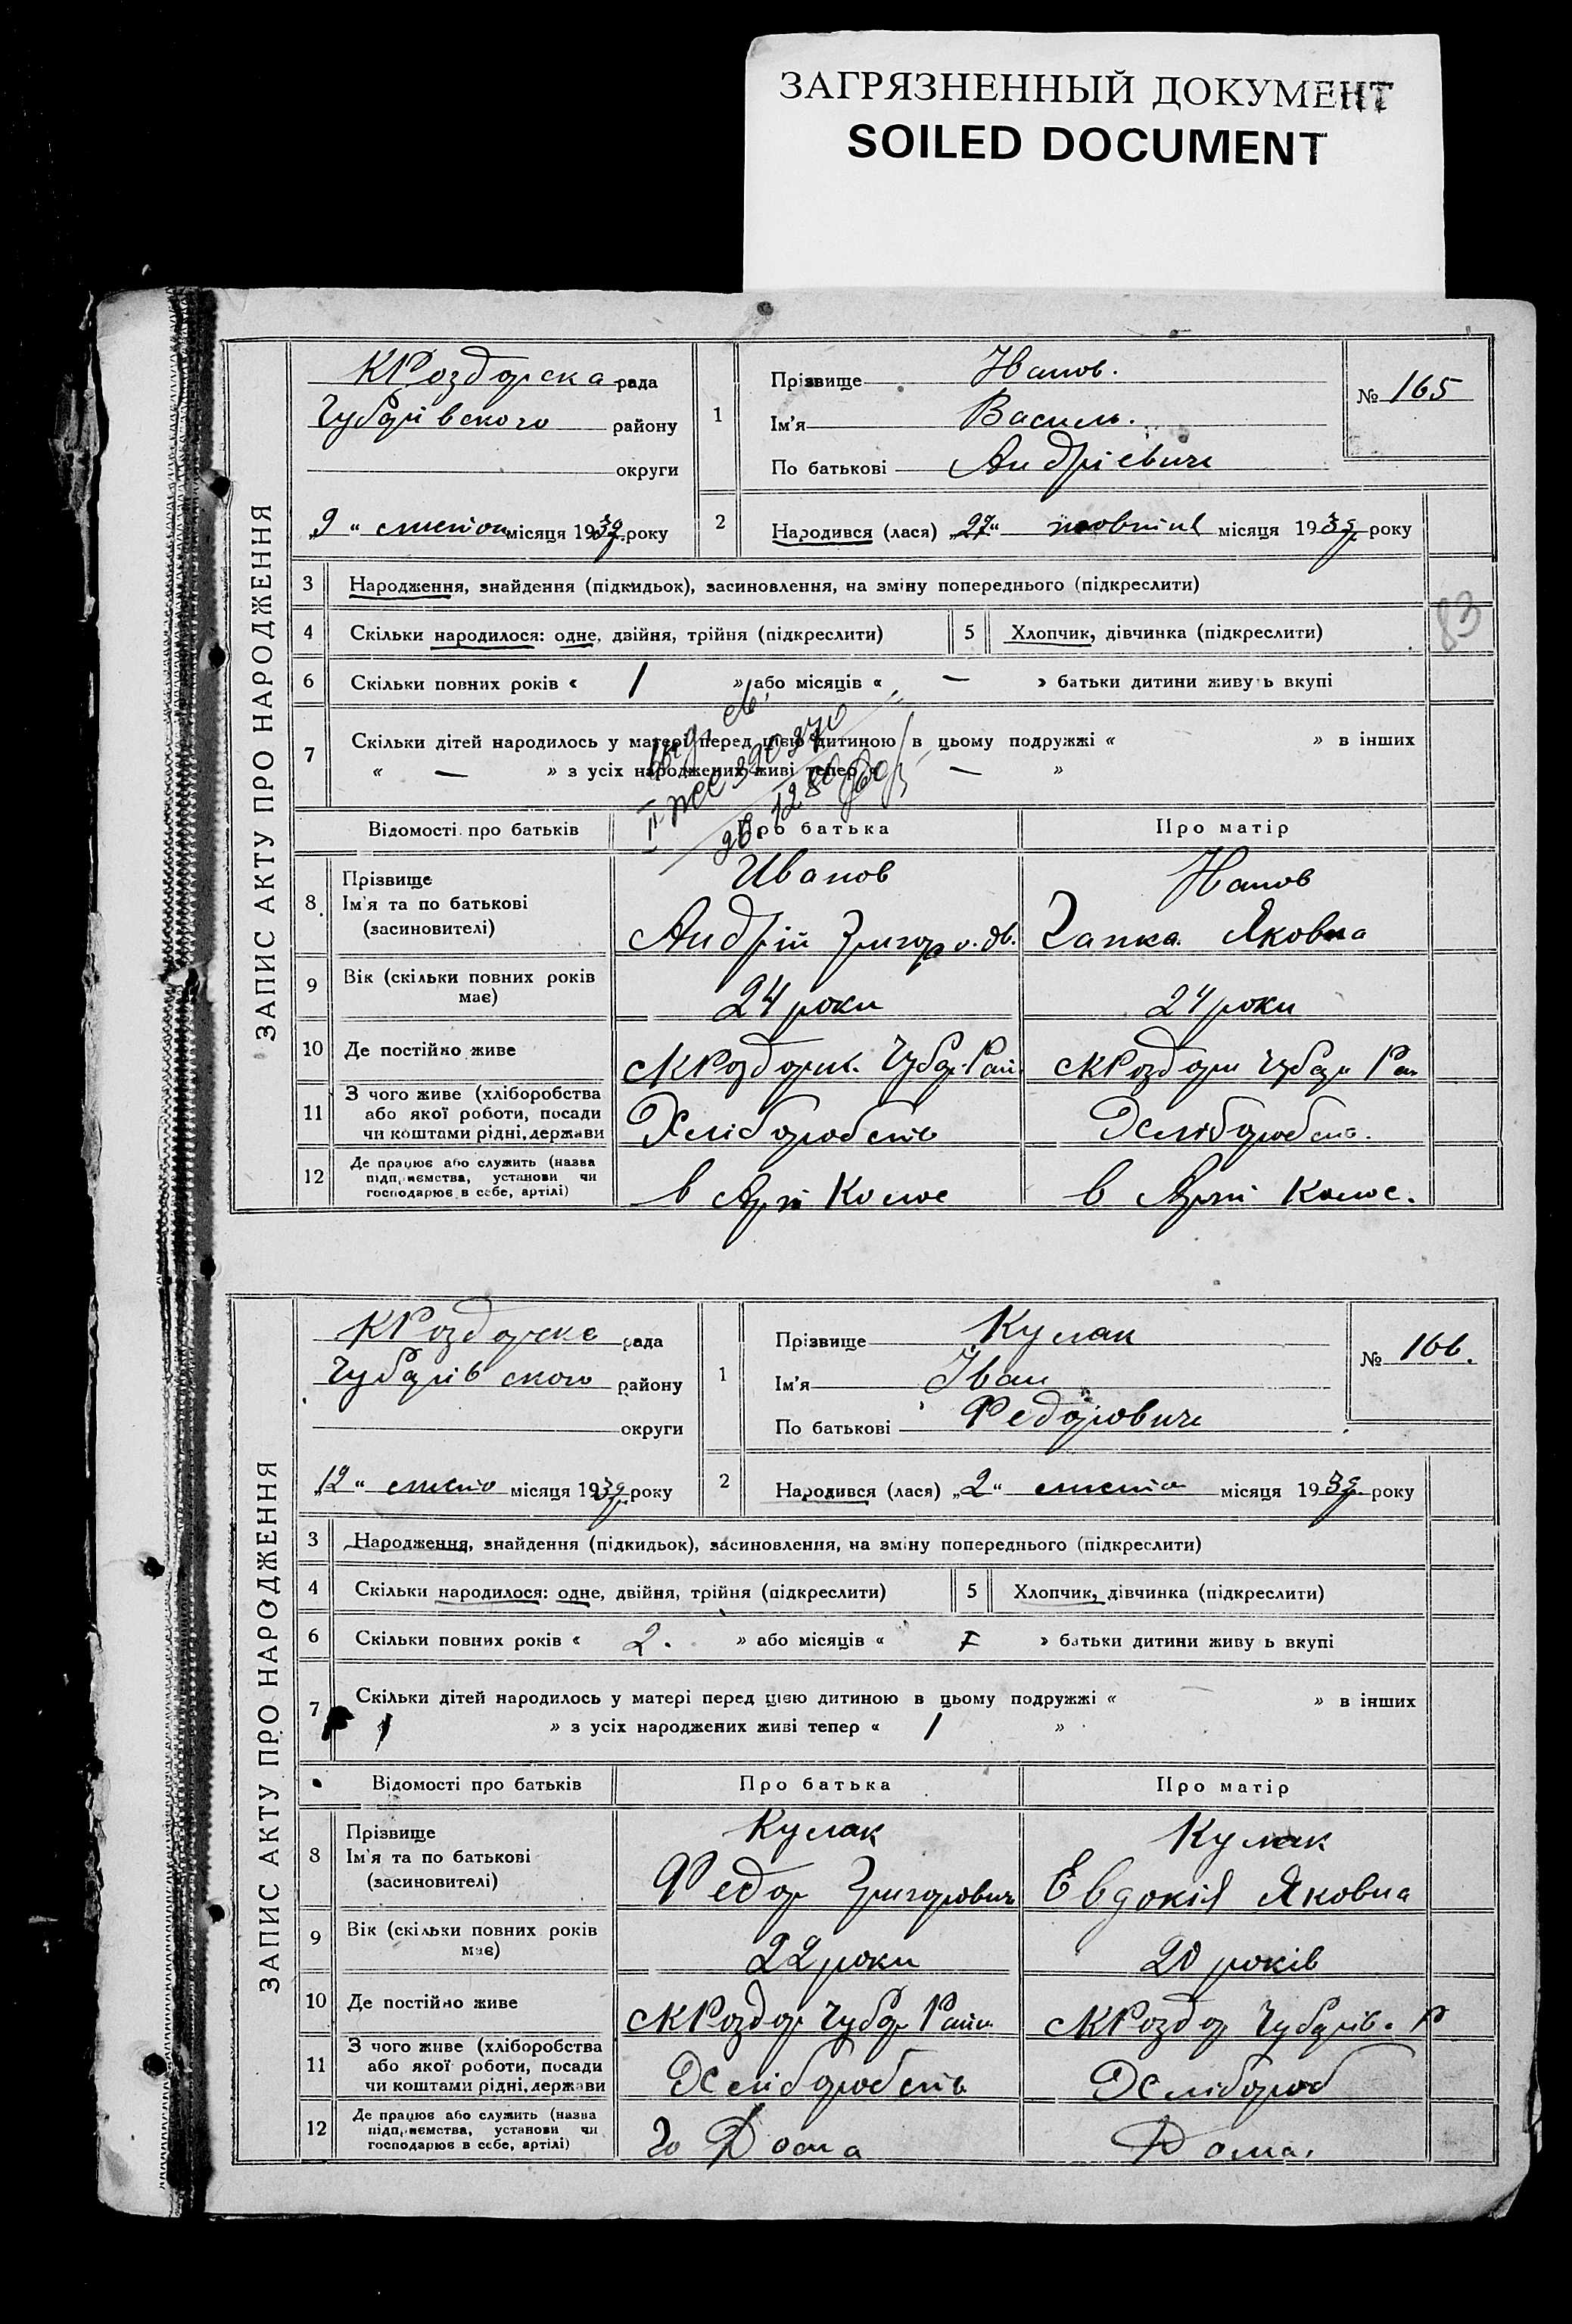 ЗАГРЯЗНЕННЫЙ ДОКУМЕНТ
SOILED DOCUMENT
ЗАПИС АКТУ ПРО НАРОДЖЕННЯ
КРоздорска рада
Чубарівского району
округи
"9" листоп місяця 1939 року
1
Прізвище Иванов.
Ім'я Василь.
По батькові Андрієвич
№ 165
2
Народився (лася) "27" жовтня місяця 1939 року
3 Народження, знайдення (підкидьок), засиновлення, на зміну попереднього (підкреслити)
83
4 Скільки народилося: одне, двійня, трійня (підкреслити)
5 Хлопчик, дівчинка (підкреслити)
6 Скільки повних років « 1 » або місяців « — » батьки дитини живуть вкупі
7 Скільки дітей народилось у матері перед цією дитиною в цьому подружжі « » в інших
« — » з усіх народжених живі тепер « — »
Відомості про батьків
Про батька
Про матір
8 Прізвище
Ім'я та по батькові
(засиновителі)
Иванов
Андрій Григоров.
Иванов
Яковна
9 Вік (скільки повних років має)
24 роки
24 роки
10 Де постійно живе
с КРоздори. Чубар. Рай
с КРоздори Чубар Ра
11 З чого живе (хліборобства
або якої роботи, посади
чи коштами рідні, держави
Хліборобств
Хліборобств.
12 Де працює або служить (назва
підприємства, установи чи
господарює в себе, артілі)
в Арті Колос
в Арті Колос.
ЗАПИС АКТУ ПРО НАРОДЖЕННЯ
КРоздорске рада
Чубарівского району
округи
"12" листо місяця 1939 року
1
Прізвище Кулак
Ім'я Іван
По батькові Федорович
№ 166.
2
Народився (лася) "2" листо місяця 1939 року
3 Народження, знайдення (підкидьок), засиновлення, на зміну попереднього (підкреслити)
4 Скільки народилося: одне, двійня, трійня (підкреслити)
5 Хлопчик, дівчинка (підкреслити)
6 Скільки повних років « 2. » або місяців « » батьки дитини живуть вкупі
7 Скільки дітей народилось у матері перед цією дитиною в цьому подружжі « » в інших
« 1 » з усіх народжених живі тепер « 1 »
Відомості про батьків
Про батька
Про матір
8 Прізвище
Ім'я та по батькові
(засиновителі)
Кулак
Федор Григорович
Кулак
Евдокія Яковна
9 Вік (скільки повних років має)
22 роки
20 років
10 Де постійно живе
с КРоздор Чубар Райн
с КРоздор Чубарів. Р
11 З чого живе (хліборобства
або якої роботи, посади
чи коштами рідні, держави
Хліборобств
Хлібороб
12 Де працює або служить (назва
підприємства, установи чи
господарює в себе, артілі)
Дома
Дома.